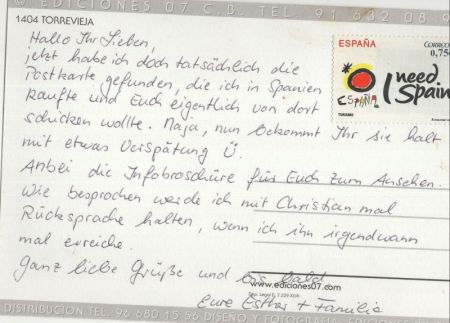 EDICIONES 07 C.B. TEL. 91 632 08 9
1404 TORREVIEJA
ESPAÑA
CORREOS
0,75€
I need Spain
ESPAÑA
TURISMO
Hallo Ihr Lieben,
jetzt habe ich doch tatsächlich die
Postkarte gefunden, die ich in Spanien
kaufte und Euch eigentlich von dort
schicken wollte. Naja, nun bekommt Ihr sie halt
mit etwas Verspätung Ü
Anbei die Infobroschüre für Euch zum Ansehen.
Wie besprochen werde ich mit Christian mal
Rücksprache halten, wenn ich ihn irgendwann
mal erreiche.
Ganz liebe Grüße und bis bald
www.ediciones07.com
Eure Esther + Familie
DISTRIBUCION TEL. 96 680 15 56 DISEÑO Y FOTOGRAFIA EDICIONES